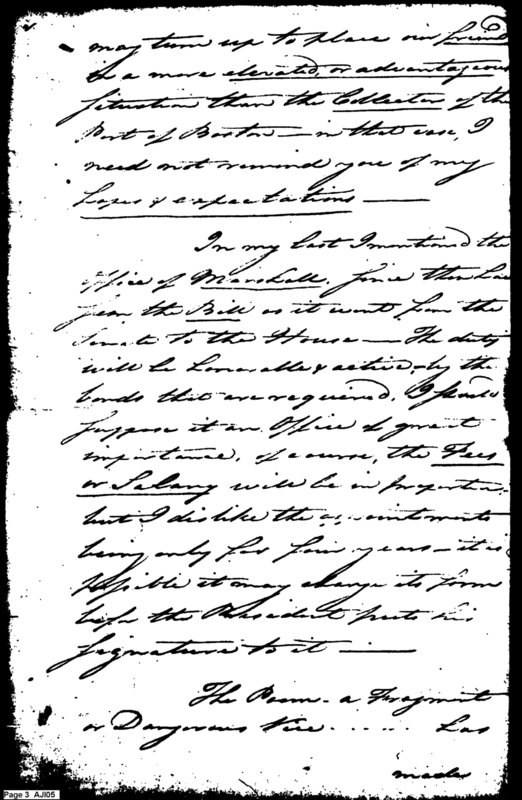 may turn up to place our friend
in a more elevated, or advantageous
situation than the Collector of the
Port of Boston — in that case, I
need not remind you of my
hopes & expectations —
In my last I mentioned the
office of Marshall. Since then have
seen the Bill as it went from the
Senate to the House — The duty
will be honorable & active, by the
bonds that are required, I should
suppose it an Office of great
importance, of course, the Fees
or Salary will be in proportion,
but I dislike the appointments
being only for four years — it is
possible it may change its form
before the President puts his
signature to it —
The Poem - a Fragment
or Dangerous Vice ..... has
made
Page 3 AJI05